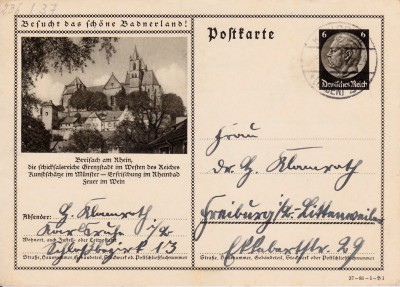 Besucht das schöne Badnerland!
Breisach am Rhein,
die schicksalsreiche Grenzstadt im Westen des Reiches
Kunstschätze im Münster — Erfrischung im Rheinbad
Feuer im Wein
Absender: G. Klamroth
Karlsruhe i/B.
Wohnort, auch Zustell- oder Leitpostamt
Schloßbezirk 13
Straße, Hausnummer, Gebäudeteil, Stockwerk od. Postschließfachnummer
Postkarte
6 6
Deutsches Reich
Frau
Dr. G. Klamroth
Freiburg i/Br. Littenweiler
Straße, Hausnummer, Gebäudeteil, Stockwerk oder Postschließfachnummer
29